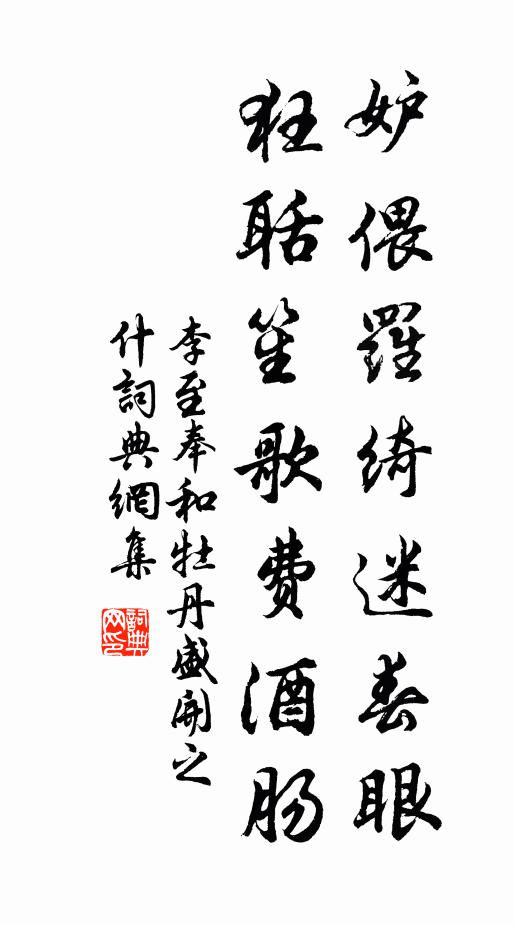 妒偎羅綺迷春眼
狂聒笙歌費酒腸
李至奉和牡丹盛開之
什詞典網集
詞典
网印